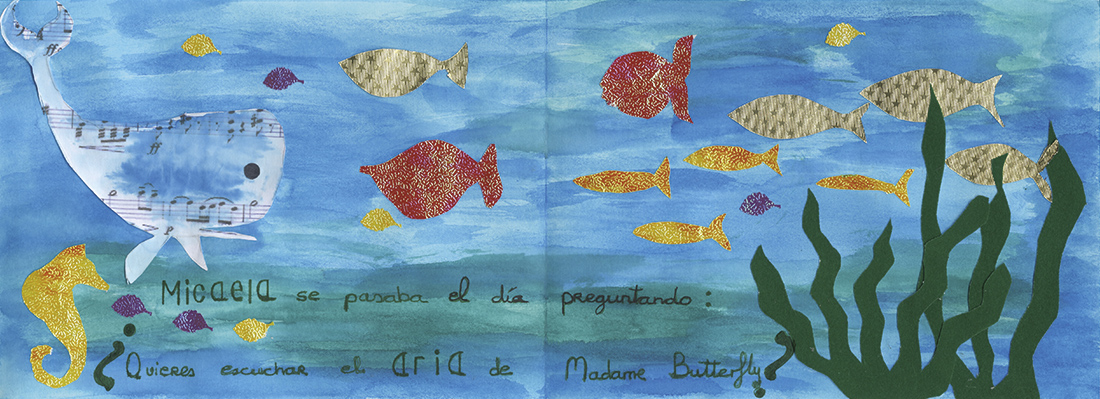 Micaela se pasaba el día preguntando:
¿Quieres escuchar el aria de Madame Butterfly?